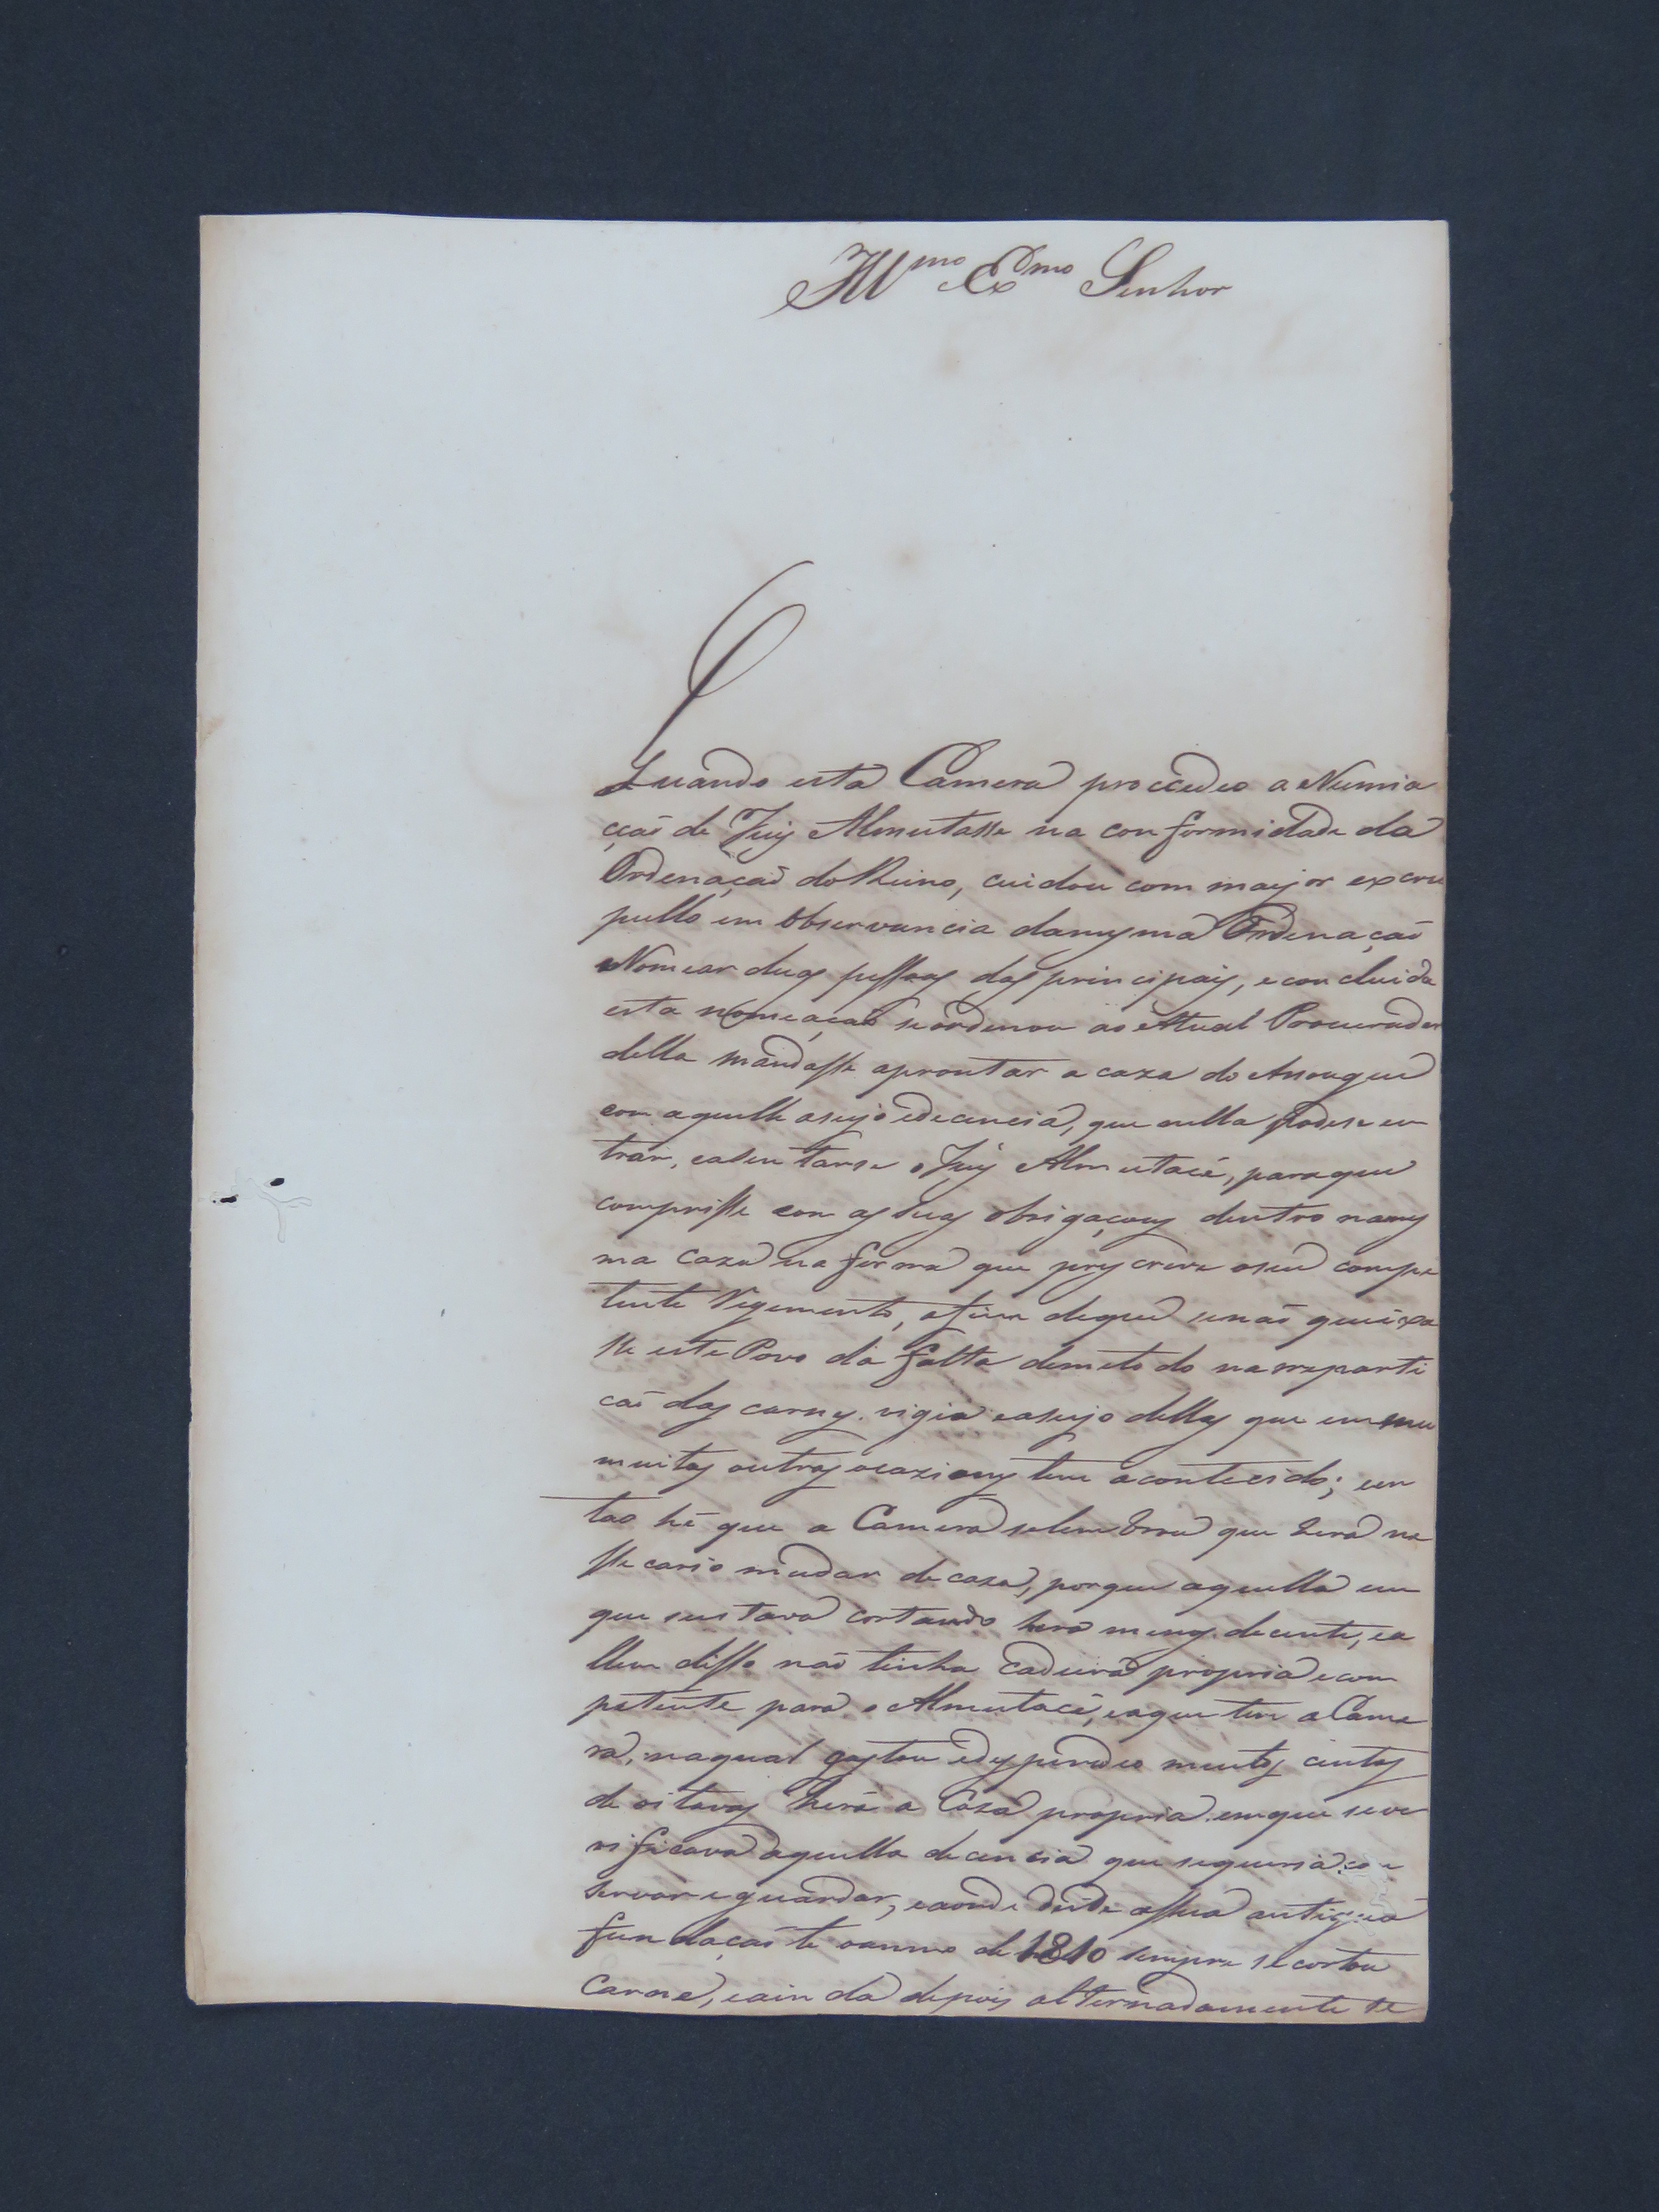 Illmo Exmo Senhor
Quando esta Camera proccedeo a Numia
çaõ de Juiz Almutasse na conformidade da
Ordenaçaõ do Reino, cuidou com mayor excru
pullo em Observancia damesma Ordenaçaõ
Nomear duas pessoas das principais, e concluida
esta nomeaçaõ se ordenou ao Atual Procurador
della mandasse aprontar a caza do Asougue
com aquelle aseyo edecencia, que nella podese en
trar, easentarse o Juiz Almutacé, paraque
comprisse com as suas obrigaçoes dentro names
ma Caza na forma que prescreve oseu compe
tente Regimento, afim deque senaõ queixa
sse este Povo da falta demetodo na reparti
caõ das carnes. vigia easeyo dellas que em mu
muitas outras ocazioens tem acontecido; en
tao hé que a Camera selembrou que hera ne
ssecario mudar de caza, porque aquella em
que sestava cortando hera menos decente, ea
llem disso naõ tinha Cadeira propria ecom
petente para o Almutacé, eaque tem a Came
ra, naqual gastou edespendeo muitos centos
de oitavas hera a Caza propria emque seve
rificava aquella decencia que sequeria con
servar eguardar, eaonde desde assua antigua
fundaçaõ te oanno de 1810 sempre se cortou
Carne, eainda depois alternadamente se